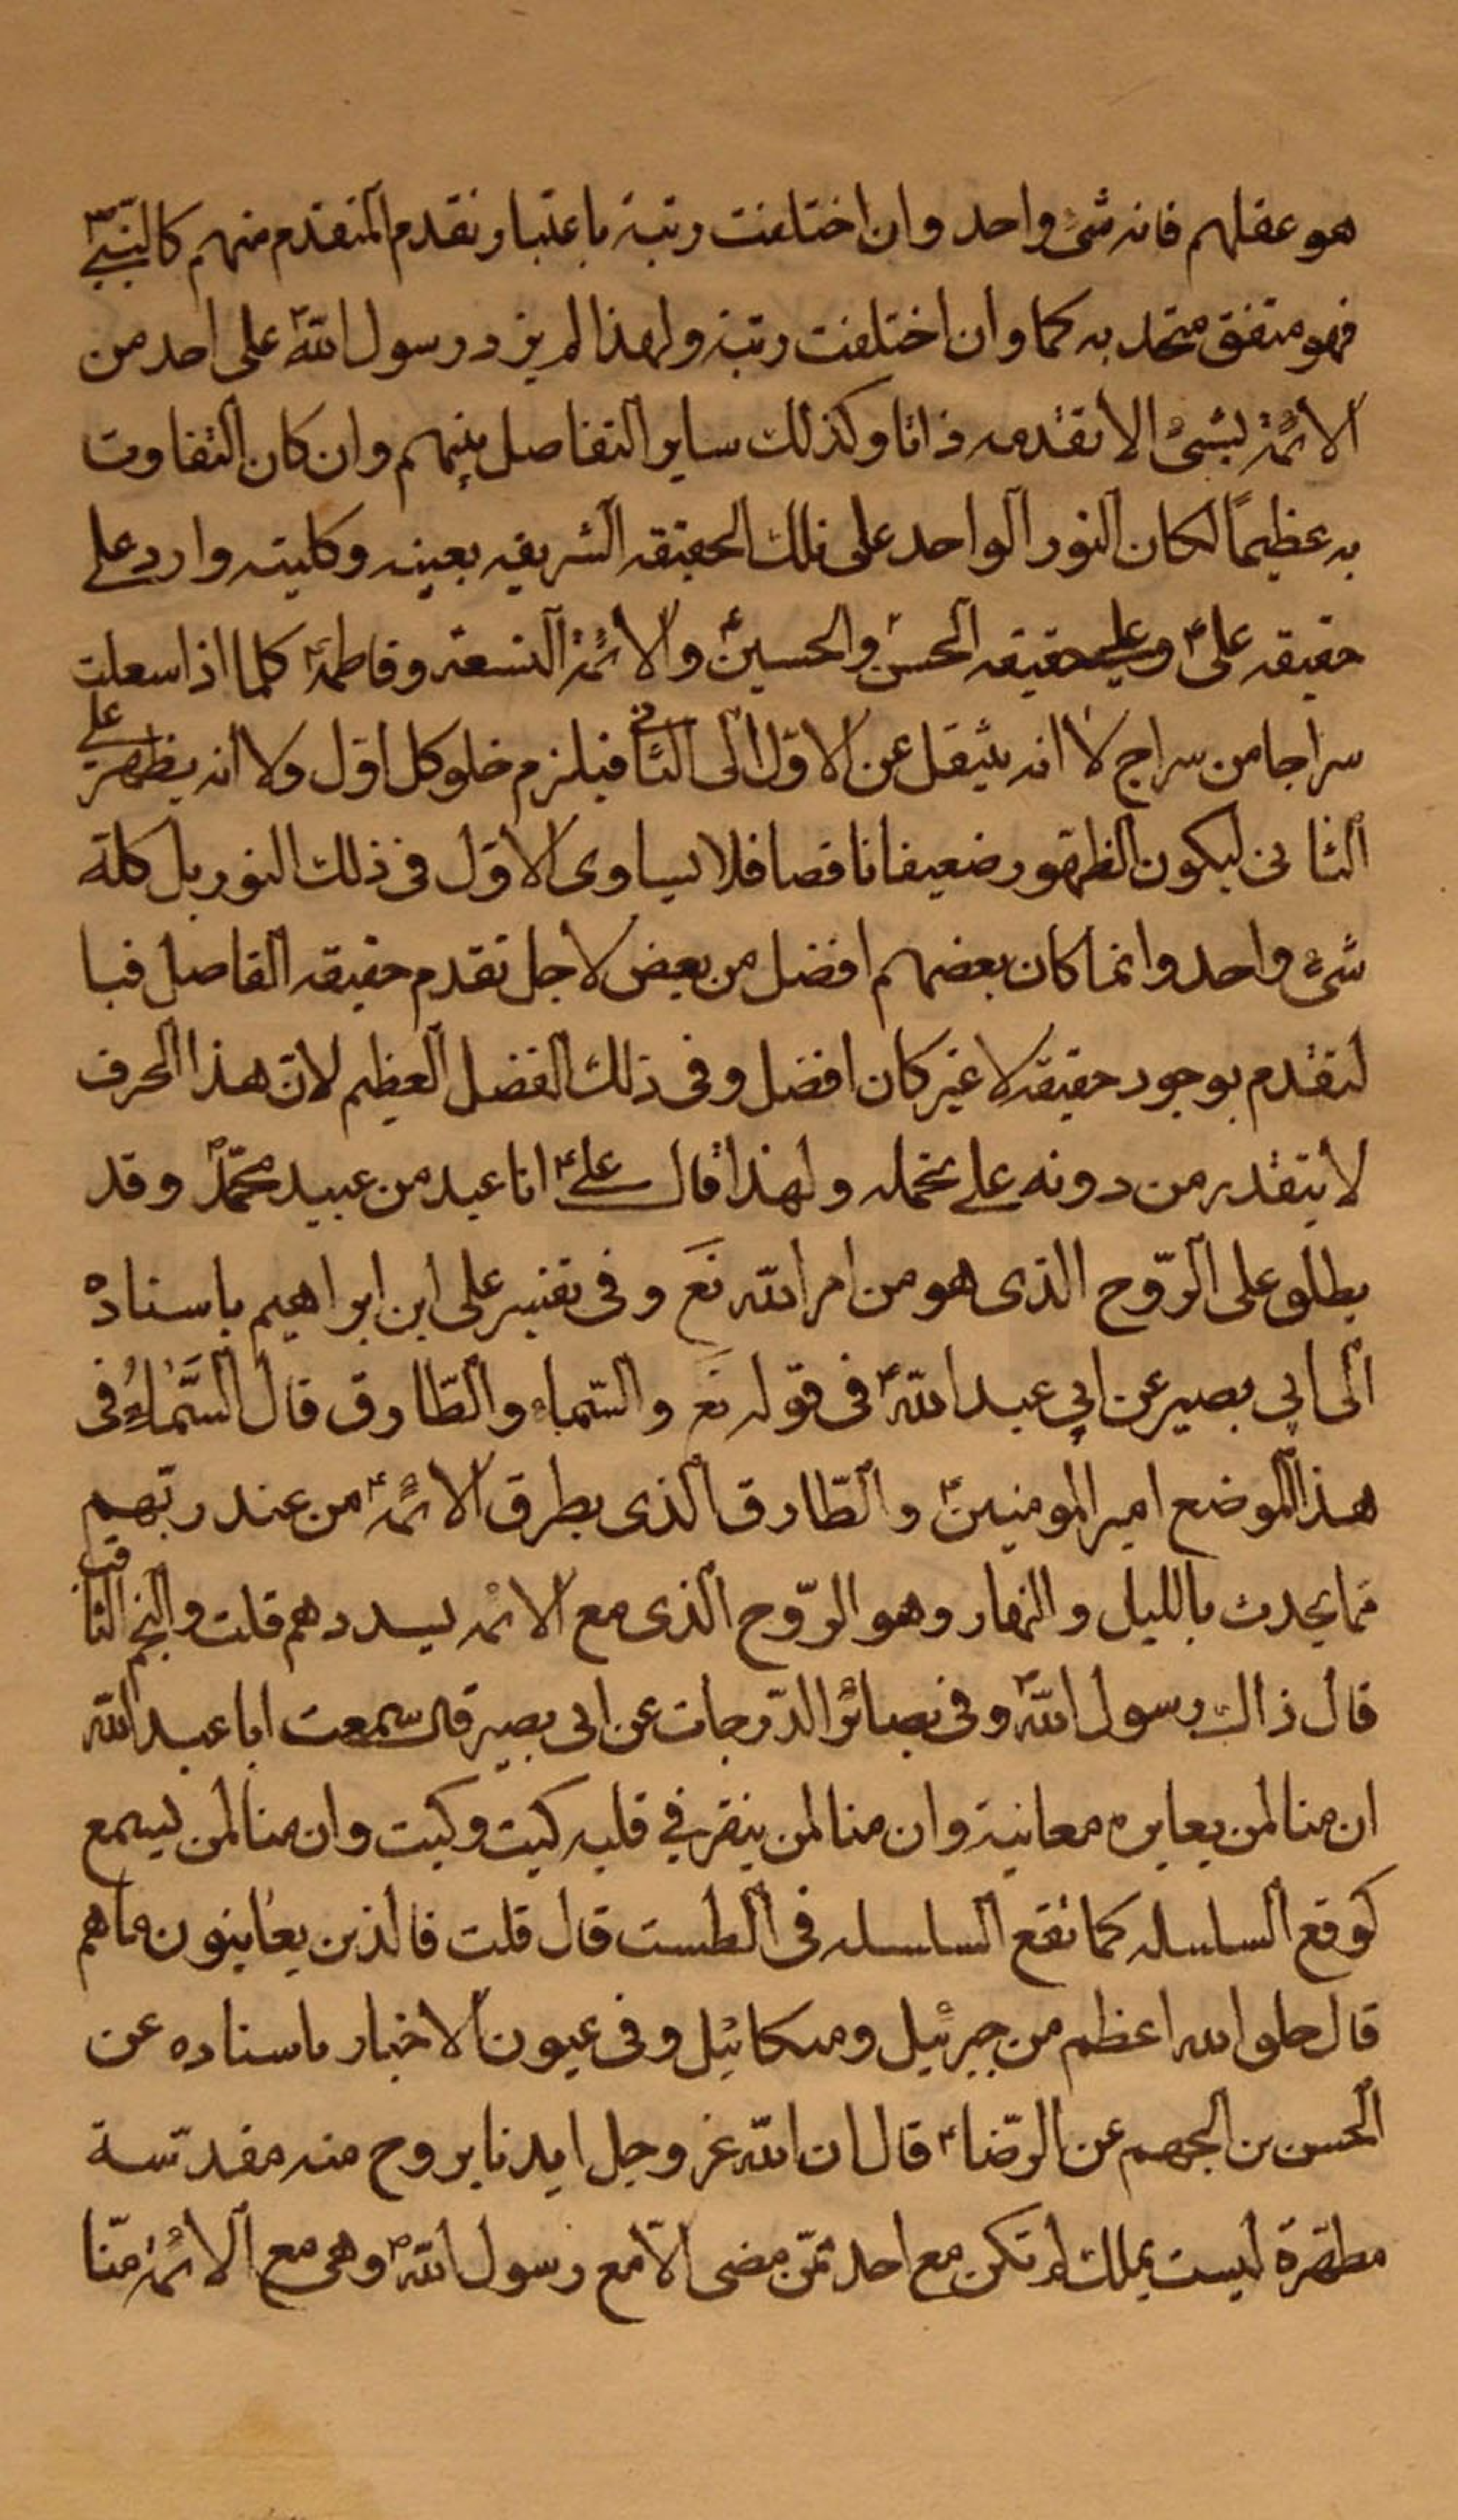 هو عقلهم فانه شئ واحد وان اختلفت رتبة باعتبار تقدم المتقدم منهم كالنبيّ ص
فهو متفق متحد به كما وان اختلفت رتبة ولهذا لم يزد رسول الله ص على احد من
الائمة بشئ الا تقدمه ذاتا وكذلك ساير التفاصل بينهم وان كان التفاوت
به عظيمًا لكان النور الواحد على تلك الحقيقه الشريفه بعينه وكليته وارد على
حقيقه علي ع وعلى حقيقه الحسن والحسين ع والائمة التسعة وفاطمة ع كلما اذا سعلت
سراجا من سراج لا انه ينتقل عن الاول الى الثاني فيلزم خلو كل اول ولا انه يظهر على
الثاني ليكون الظهور ضعيفا ناقصا فلا يساوى الاوّل فى ذلك النور بل كلة
شئ واحد وانما كان بعضهم افضل من بعض لاجل تقدم حقيقه الفاصل فبا
لتقدم بوجود حقيقه لا غير كان افضل وفى ذلك الفضل العظيم لانّ هذا الحرف
لا يتقدر من دونه على تحمله ولهذا قال علي ع انا عبد من عبيد محمّد ص وقد
يطلق على الرّوح الذى هو من امر الله تع وفى تفسير على ابن ابراهيم باسناده
الى ابي بصير عن ابي عبد الله ع فى قوله تع والسّماء والطّارق قال السَّمٰاءُ فى
هذا الموضع امير المومنين ع والطّارق الذى يطرق الائمّة ع من عند ربّهم
مما يحدث بالليل والنهار وهو الرّوح الذى مع الائمه يسددهم قلت والنجم الثاقب
قال ذاك رسول الله ص وفى بصائر الدّرجات عن ابى بصير قال سمعت ابا عبد الله
ان منا لمن يعاين معانية وان منا لمن ينقر في قلبه كيت وكيت وان منا لمن يسمع
كوقع السلسله كما تقع السلسله فى الطست قال قلت فالذين يعاينون ما هم
قال خلق الله اعظم من جبرئيل وميكائيل وفى عيون الاخبار باسناده عن
الحسن بن الجهم عن الرّضا ع قال ان الله عز وجل ايدنا بروح منه مقدّسة
مطهّرة ليست بملك لم تكن مع احد ممّن مضى الّا مع رسول الله ص وهى مع الائمة منّا